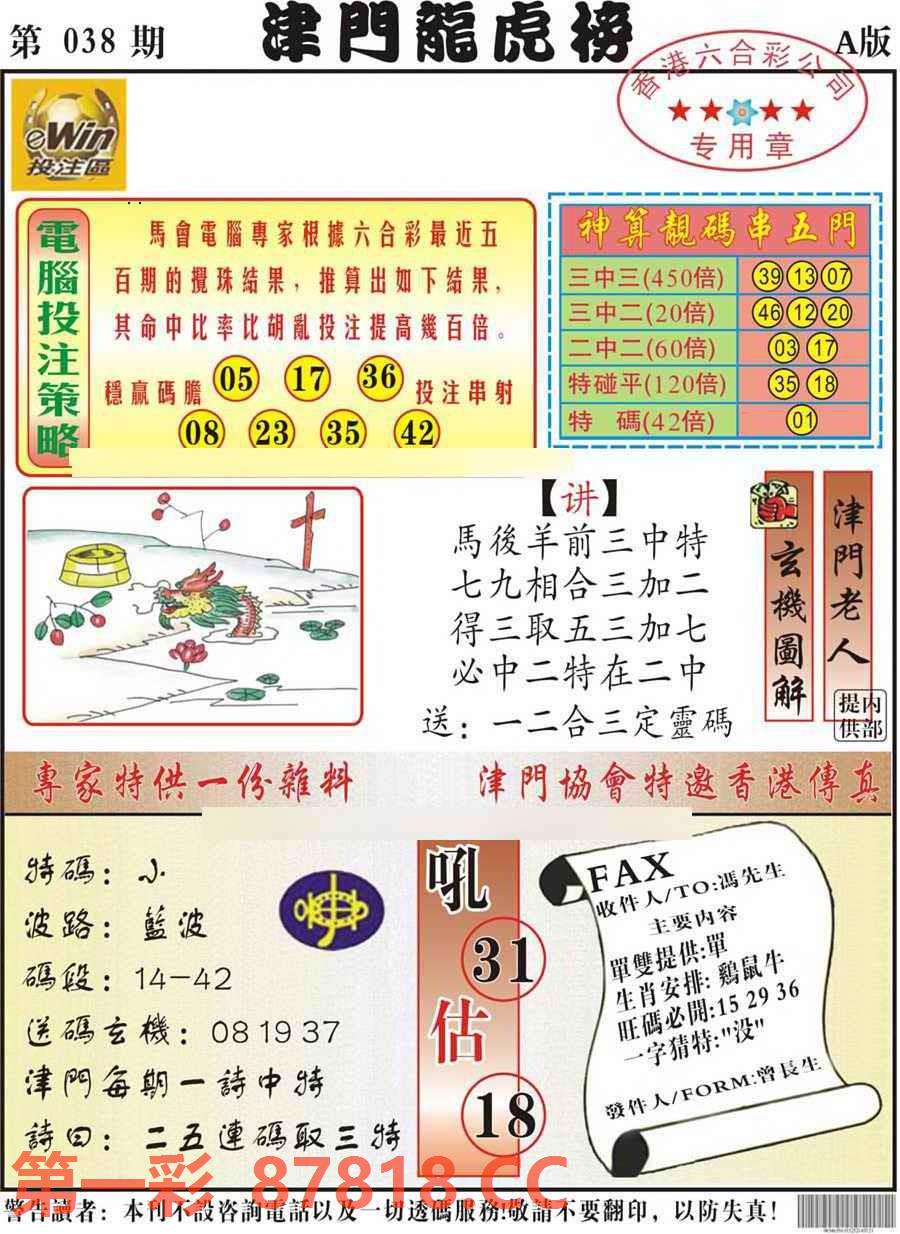 第 038 期
津門龍虎榜
A版
香港六合彩公司
专用章
eWin
投注區
電腦投注策略
馬會電腦專家根據六合彩最近五
百期的攪珠結果，推算出如下結果，
其命中比率比胡亂投注提高幾百倍。
穩贏碼膽 05 17 36 投注串射
08 23 35 42
神算靚碼串五門
三中三(450倍) 39 13 07
三中二(20倍) 46 12 20
二中二(60倍) 03 17
特碰平(120倍) 35 18
特 碼(42倍) 01
【讲】
馬後羊前三中特
七九相合三加二
得三取五三加七
必中二特在二中
送：一二合三定靈碼
玄機圖解
津門老人
内部提供
專家特供一份雜料
津門協會特邀香港傳真
特碼：小
波路：藍波
碼段：14-42
送碼玄機：08 19 37
津門每期一詩中特
詩曰：二五連碼取三特
吼
31
估
18
FAX
收件人/TO:馮先生
主要内容
單雙提供:單
生肖安排: 鷄鼠牛
旺碼必開:15 29 36
一字猜特:"没"
發件人/FORM:曾長生
第一彩 87818.CC
警告讀者：本刊不設咨詢電話以及一切透碼服務!敬請不要翻印，以防失真！